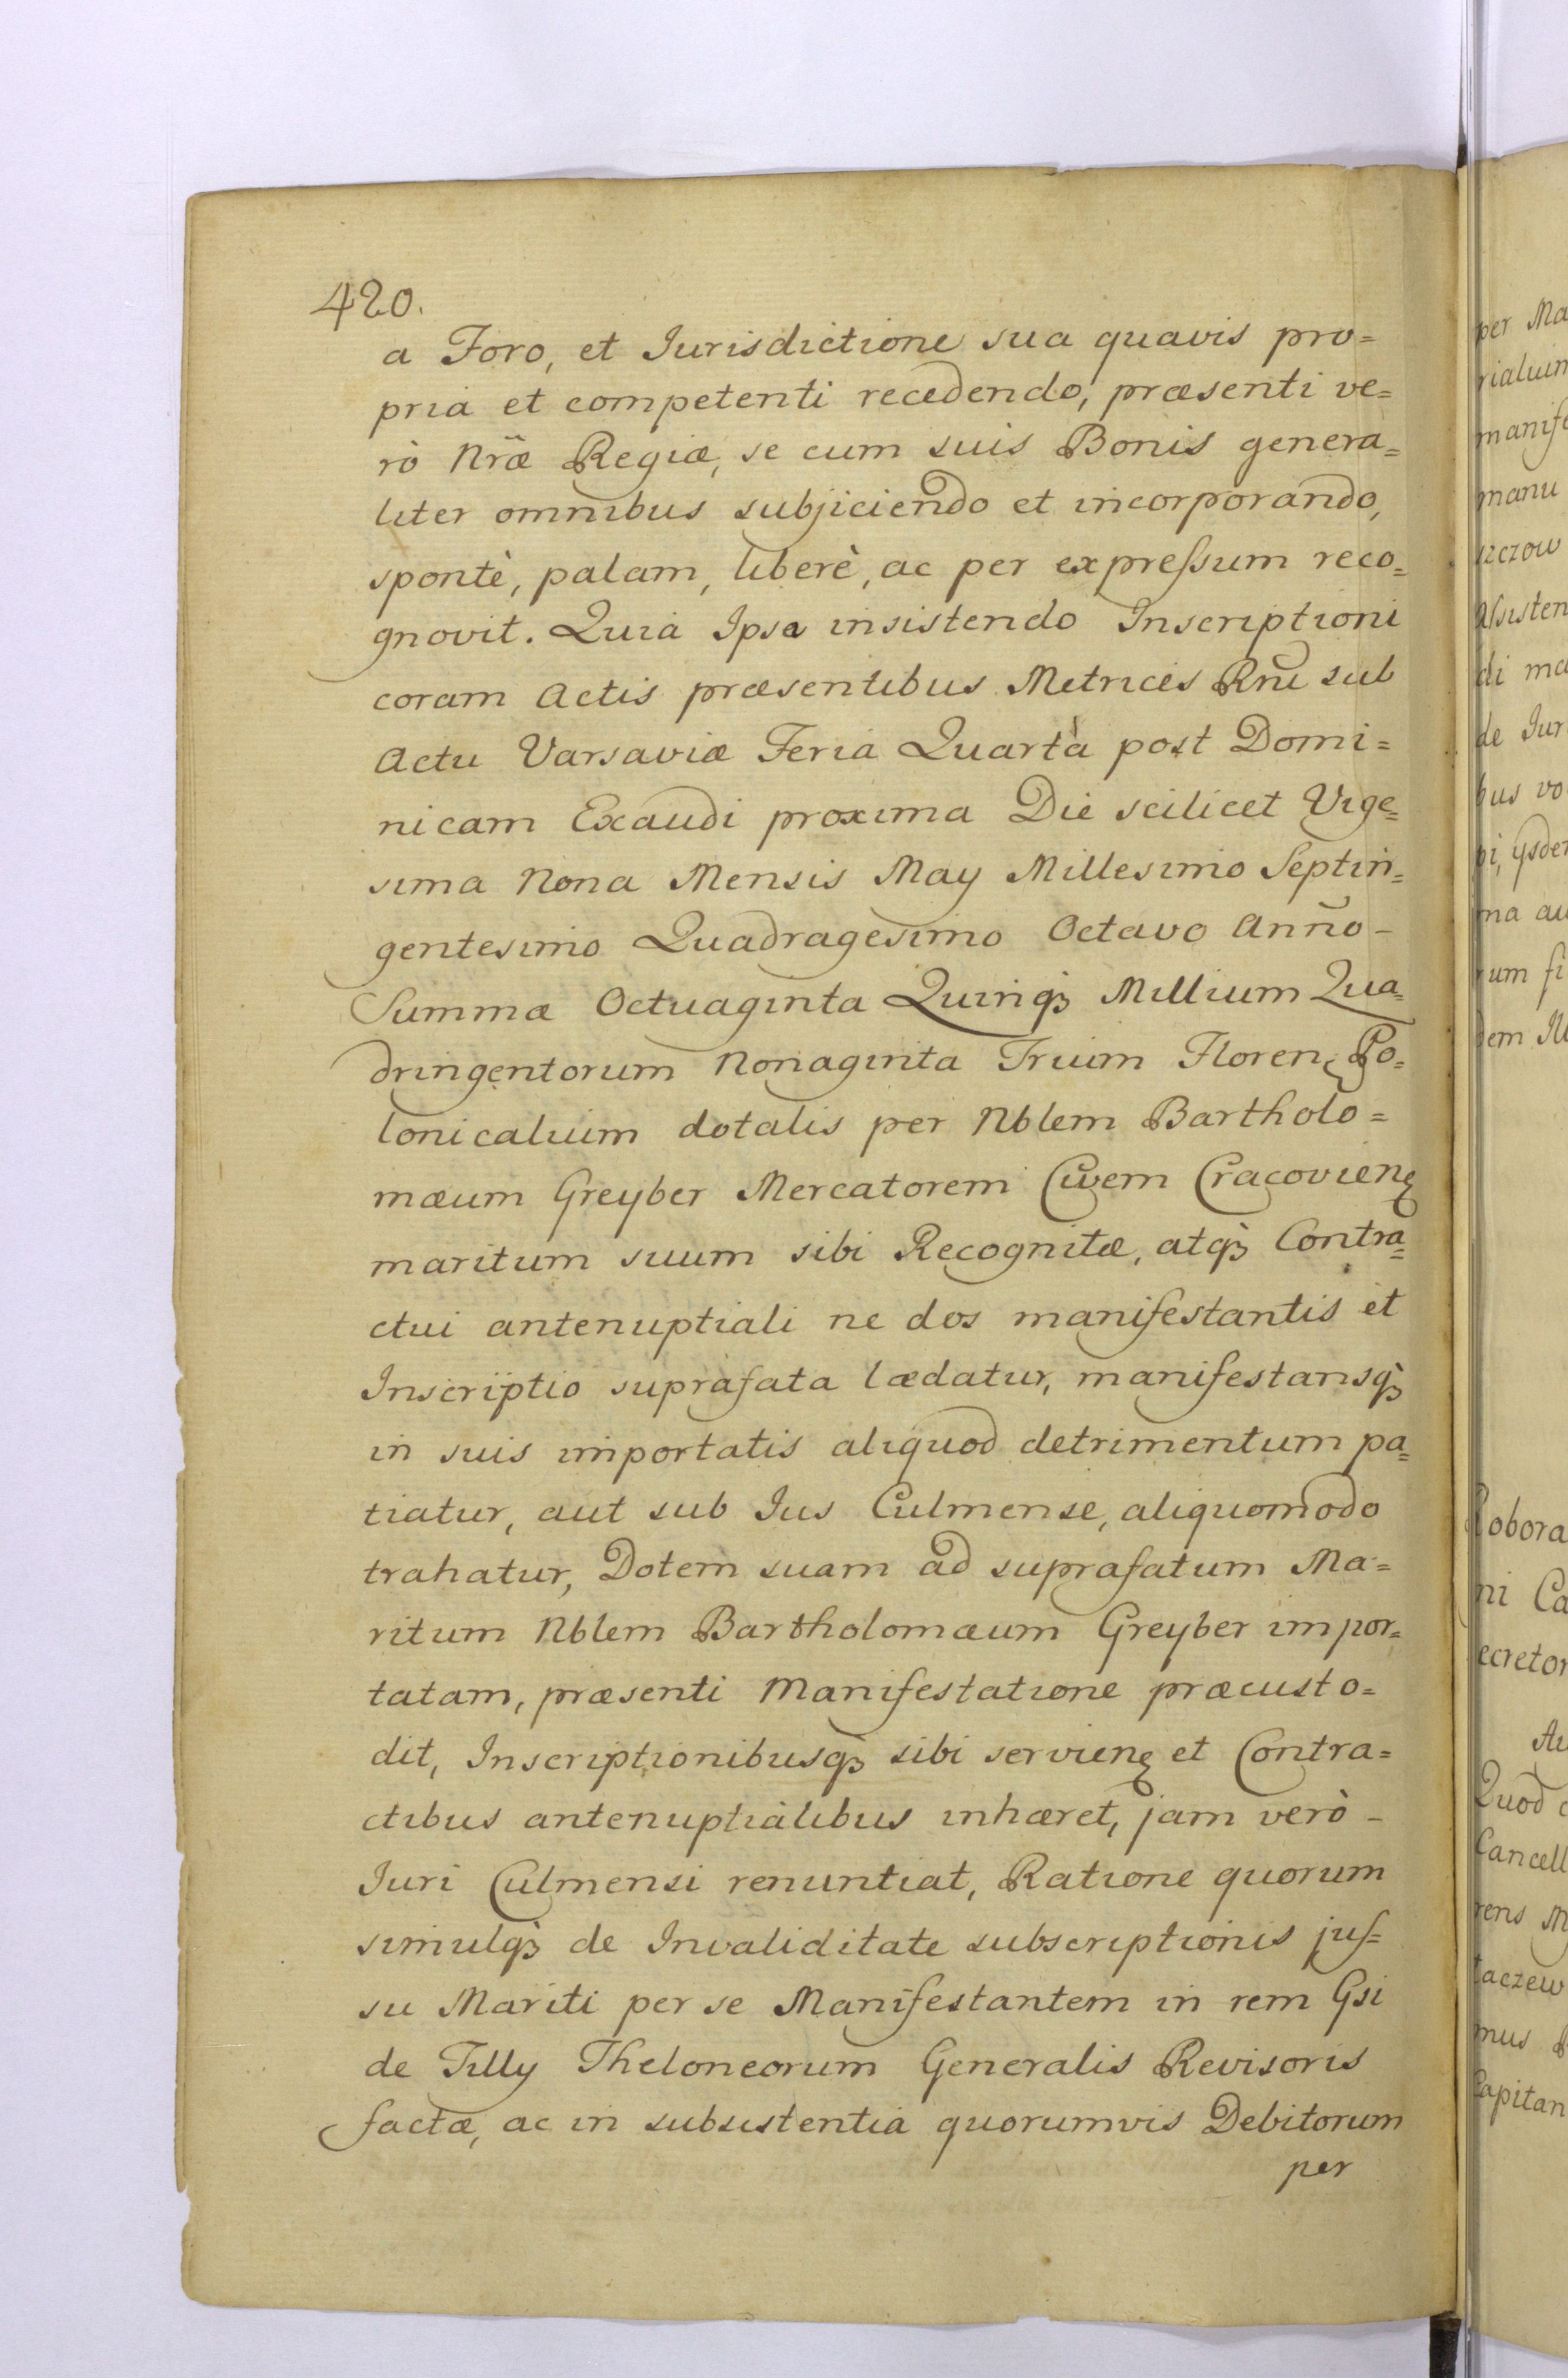 420.
a Foro, et Jurisdictione sua quavis pro=
pria et competenti recedendo, præsenti ve=
rò Nr̃æ Regiæ, se cum suis Bonis genera=
liter omnibus subjiciendo et incorporando,
spontè, palam, liberè, ac per expreſsum reco=
gnovit. Quia Ipsa insistendo Inscriptioni
coram Actis præsentibus Metrices Rñi sub
Actu Varsaviæ Feria Quarta post Domi=
nicam Exaudi proxima Die scilicet Vige=
sima Nona Mensis May Millesimo Septin=
gentesimo Quadragesimo Octavo Anño -
Summæ Octuaginta Quinq₃ Millium Qua=
dringentorum Nonaginta Trium Floren꞊ Po=
lonicalium dotalis per Nblem Bartholo=
mæum Greyber Mercatorem Civem Cracovien꞊
maritum suum sibi Recognitæ, atq₃ Contra=
ctui antenuptiali ne dos manifestantis et
Inscriptio suprafata lædatur, manifestansq₃
in suis importatis aliquod detrimentum pa=
tiatur, aut sub Jus Culmense, aliquomodo
trahatur, Dotem suam ad suprafatum Ma=
ritum Nblem Bartholomæum Greyber impor=
tatam, præsenti Manifestatione præcusto=
dit, Inscriptionibusq₃ sibi servien꞊ et Contra=
ctibus antenuptialibus inhæret, jam verò -
Juri Culmensi renuntiat, Ratione quorum
simulq₃ de Invaliditate subscriptionis juſ=
su Mariti per se Manifestantem in rem Gsi
de Tilly Theloneorum Generalis Revisoris
factæ, ac in subsistentia quorumvis Debitorum
per
per Ma
rialium
manife
manu
szczow
aſsisten
di ma
de Jur
bus vo
pi, ysdem
ma au
rum fi
dem
Robora
ni Ca
ecretor
Quod
Cancell
rens M
taczew
mus
Capitan